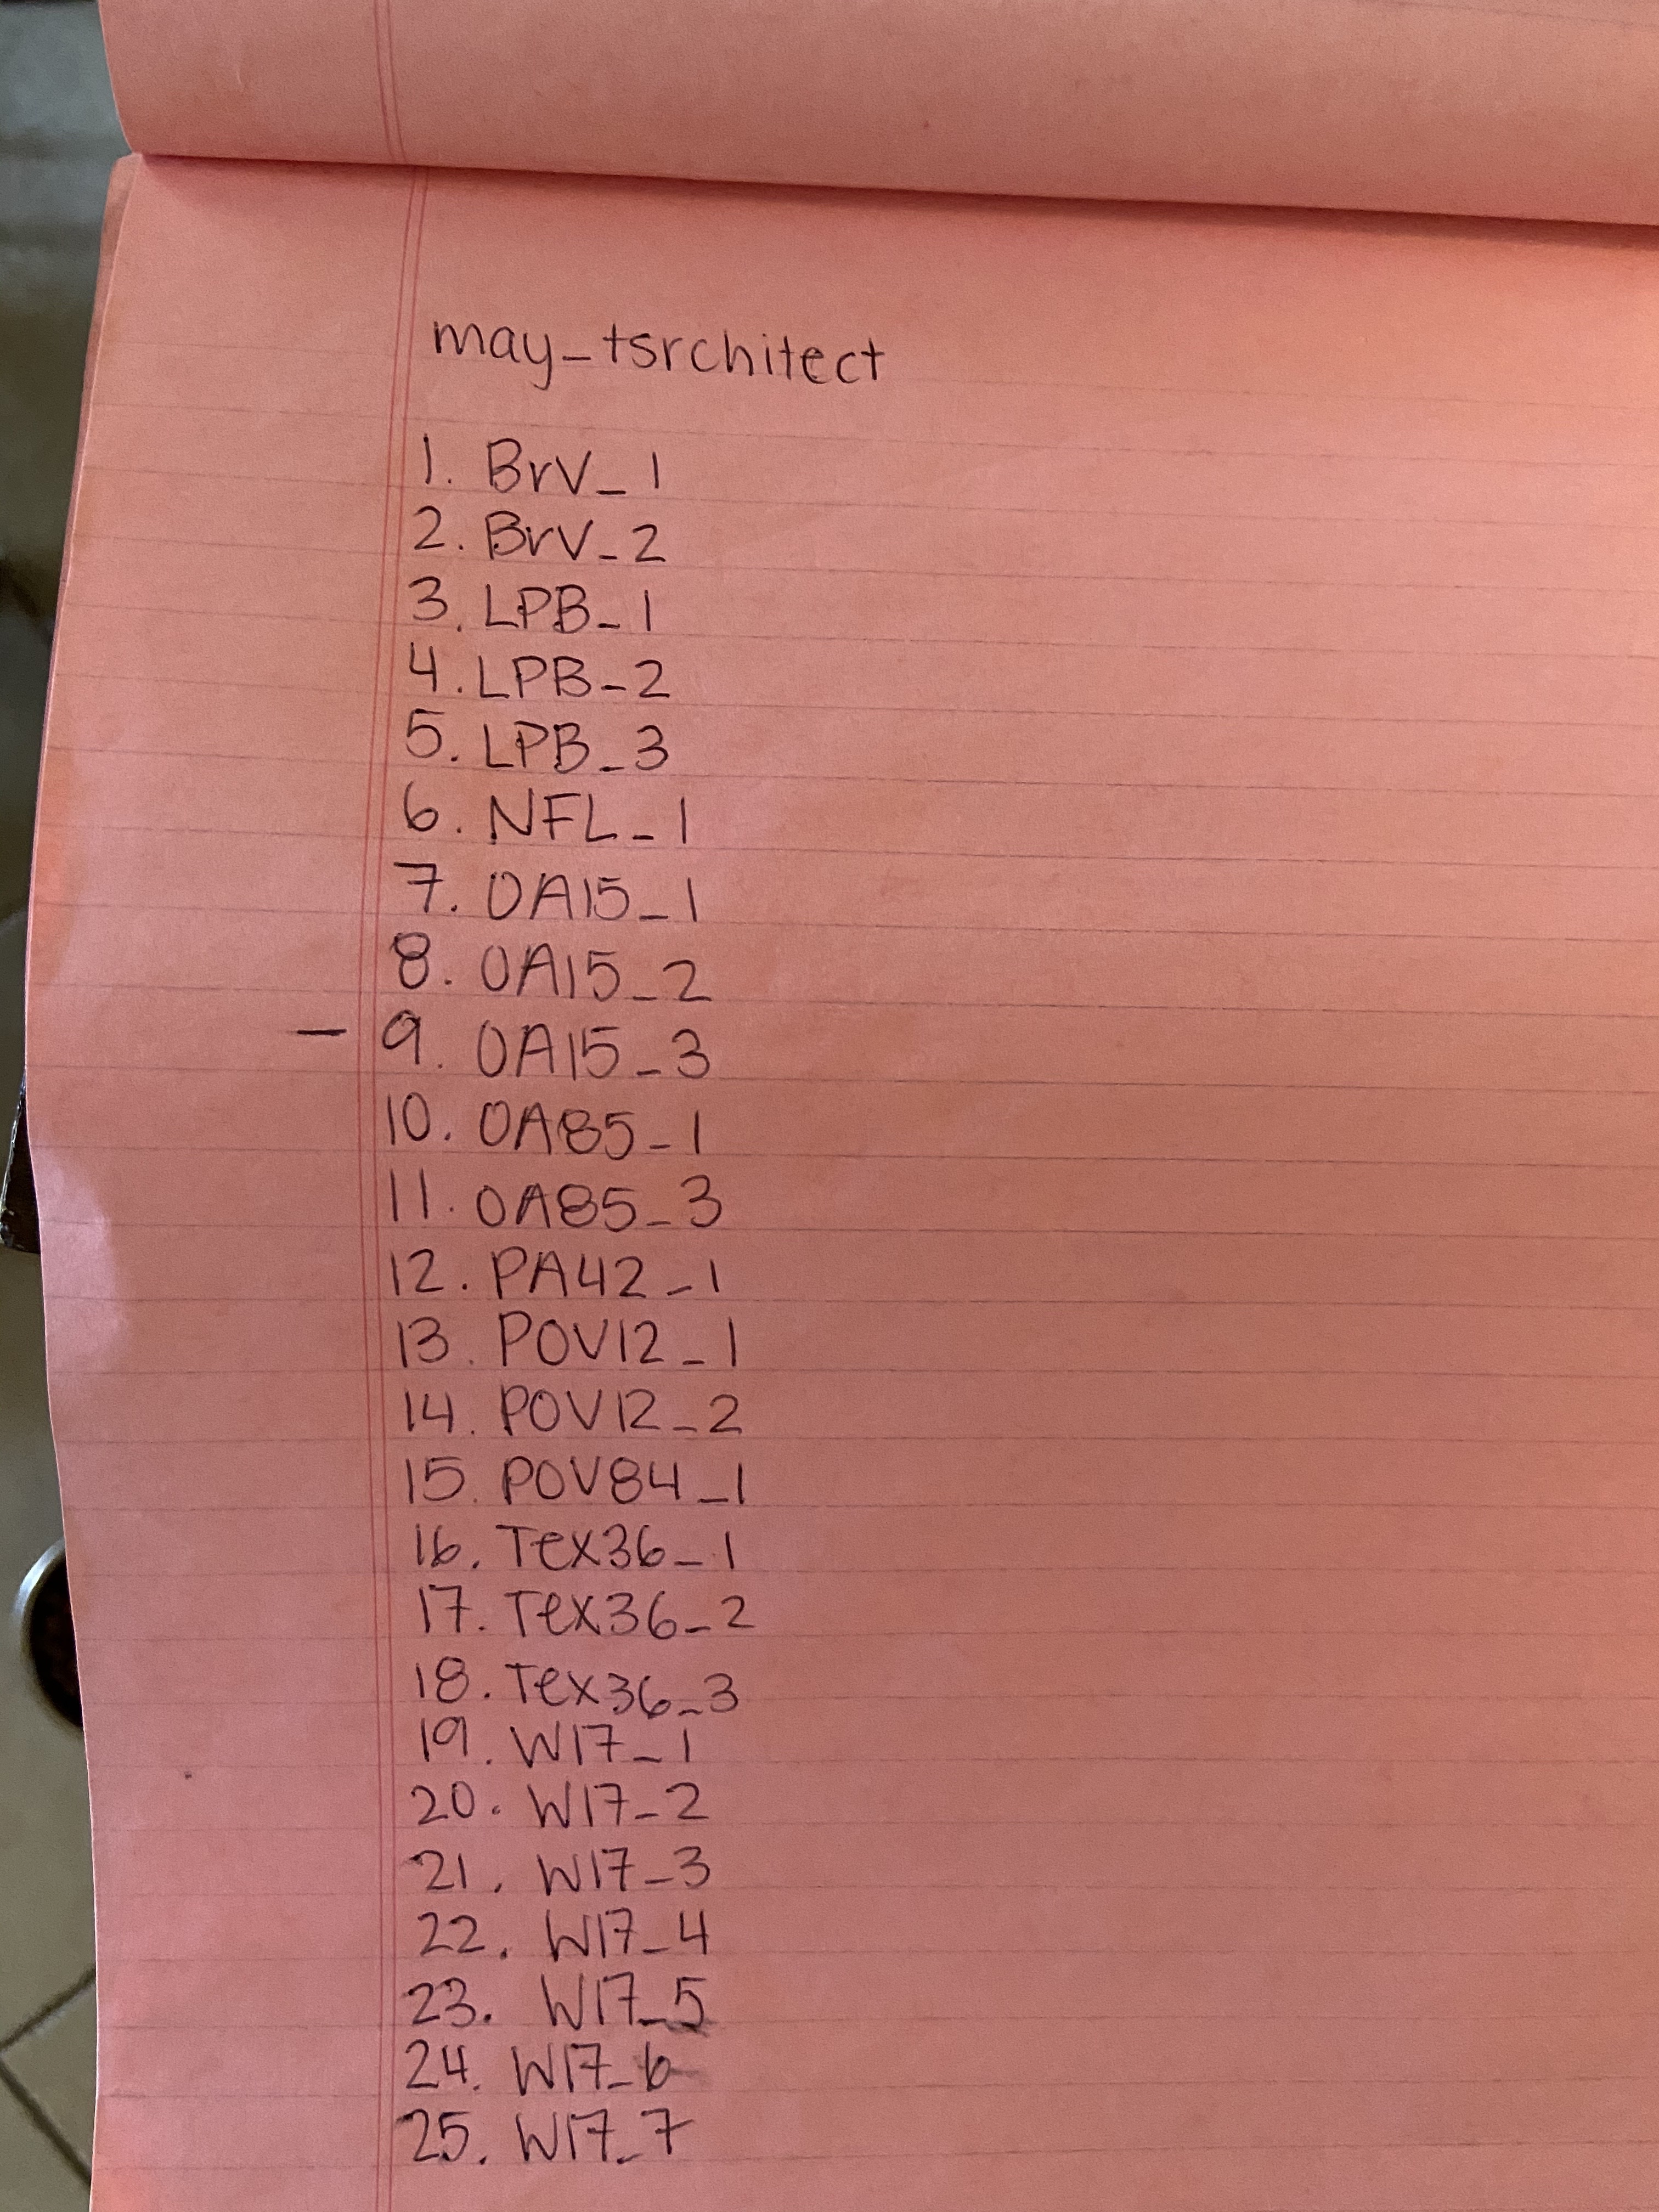 may_tsrchitect
1. BrV_1
2. BrV_2
3. LPB_1
4. LPB_2
5. LPB_3
6. NFL_1
7. OA15_1
8. OA15_2
– 9. OA15_3
10. OA85_1
11. OA85_3
12. PA42_1
13. POV12_1
14. POV12_2
15. POV84_1
16. Tex36_1
17. Tex36_2
18. Tex36_3
19. W17_1
20. W17_2
21. W17_3
22. W17_4
23. W17_5
24. W17_6
25. W17_7